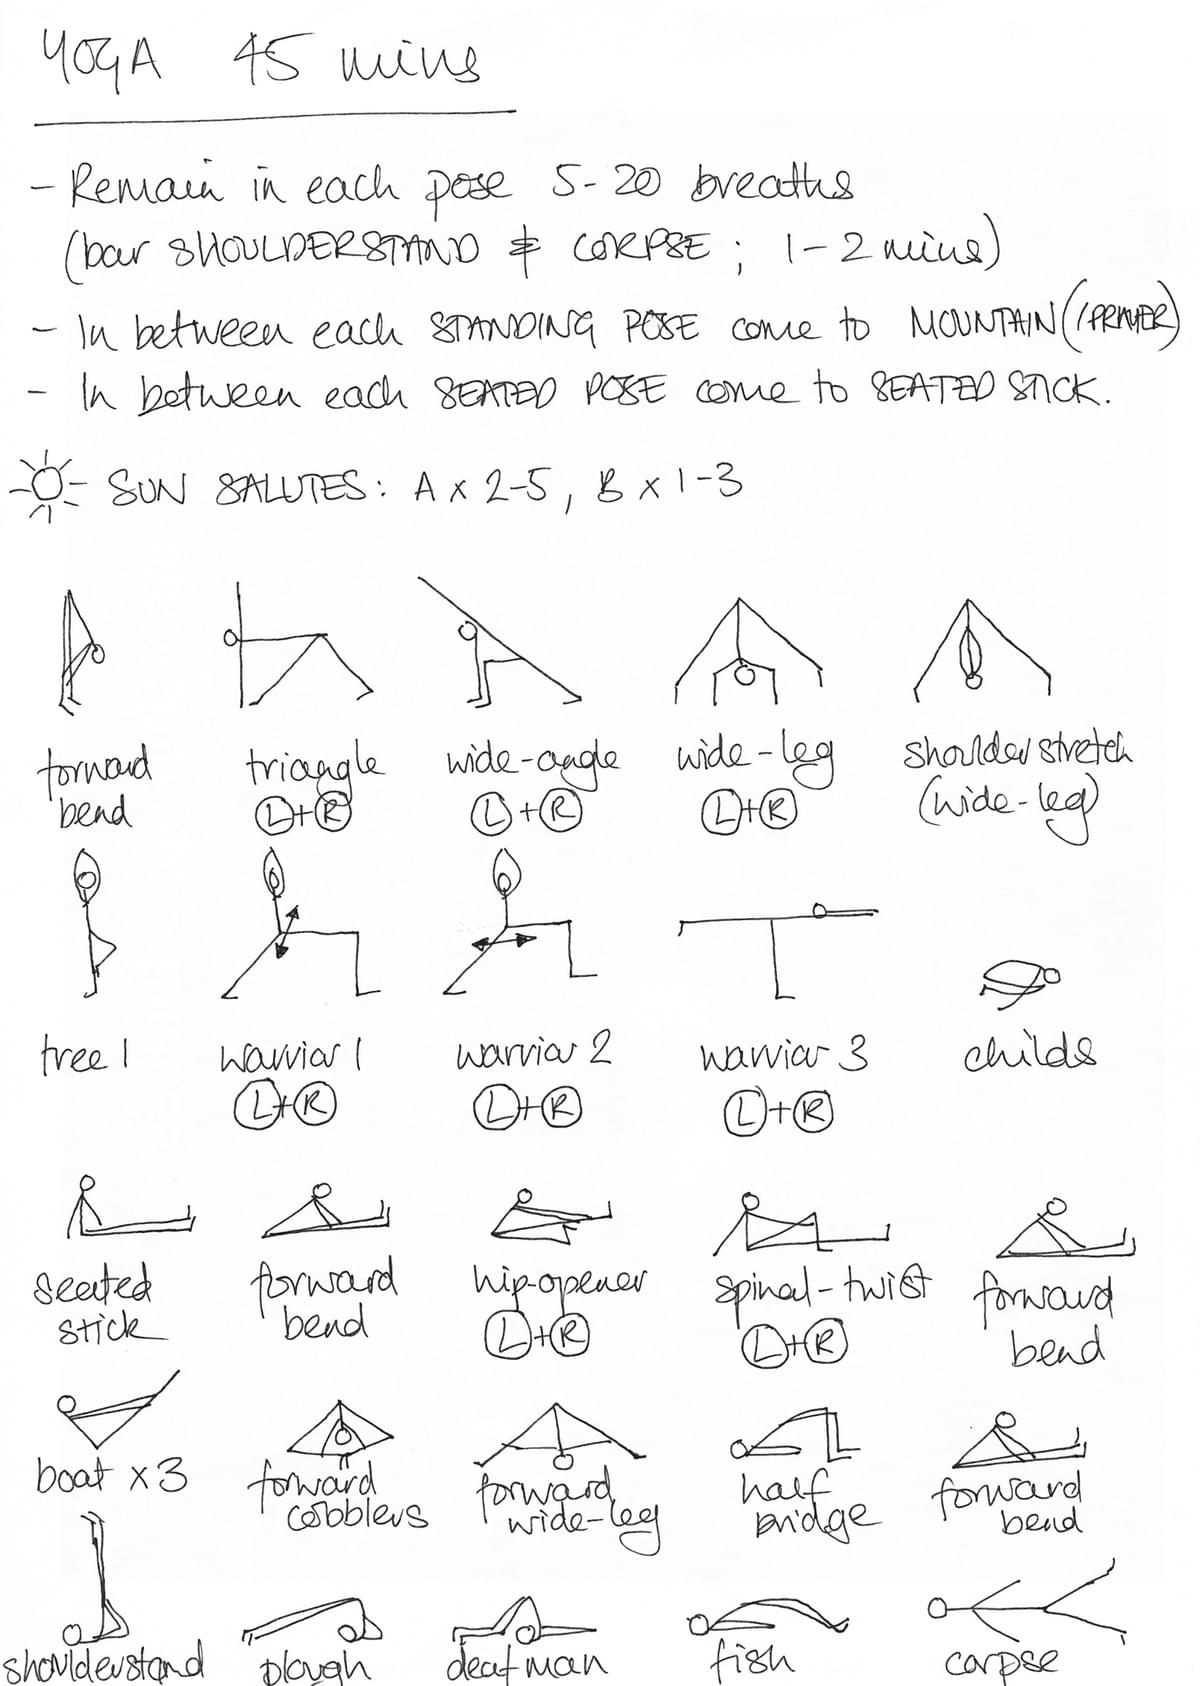 YOGA 45 mins
- Remain in each pose 5-20 breaths
(bar SHOULDERSTAND & CORPSE ; 1-2 mins)
- In between each STANDING POSE come to MOUNTAIN (/PRAYER)
- In between each SEATED POSE come to SEATED STICK.
SUN SALUTES: A x 2-5, B x 1-3
forward bend
triangle
L+R
wide-angle
L+R
wide-leg
L+R
shoulder stretch
(wide-leg)
tree 1
warrior 1
L+R
warrior 2
L+R
warrior 3
L+R
childs
seated
stick
forward
bend
hip-opener
L+R
spinal-twist
L+R
forward
bend
boat x3
forward
cobblers
forward
wide-leg
half
bridge
forward
bend
shoulderstand
plough
deaf man
fish
corpse